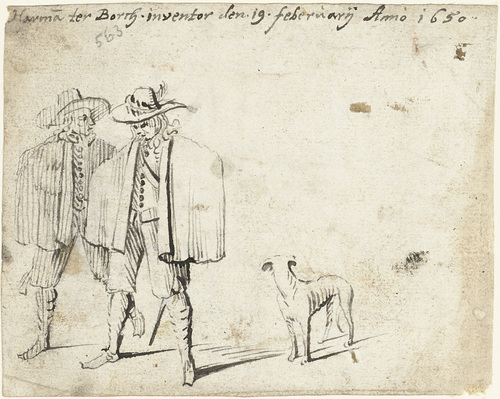 Harmā ter Borch · inventor den · 19 · feberuarij Anno 1650 ·
563